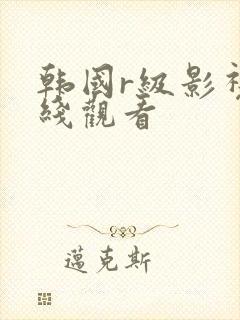 韩国r级影视
綫觀看
邁克斯